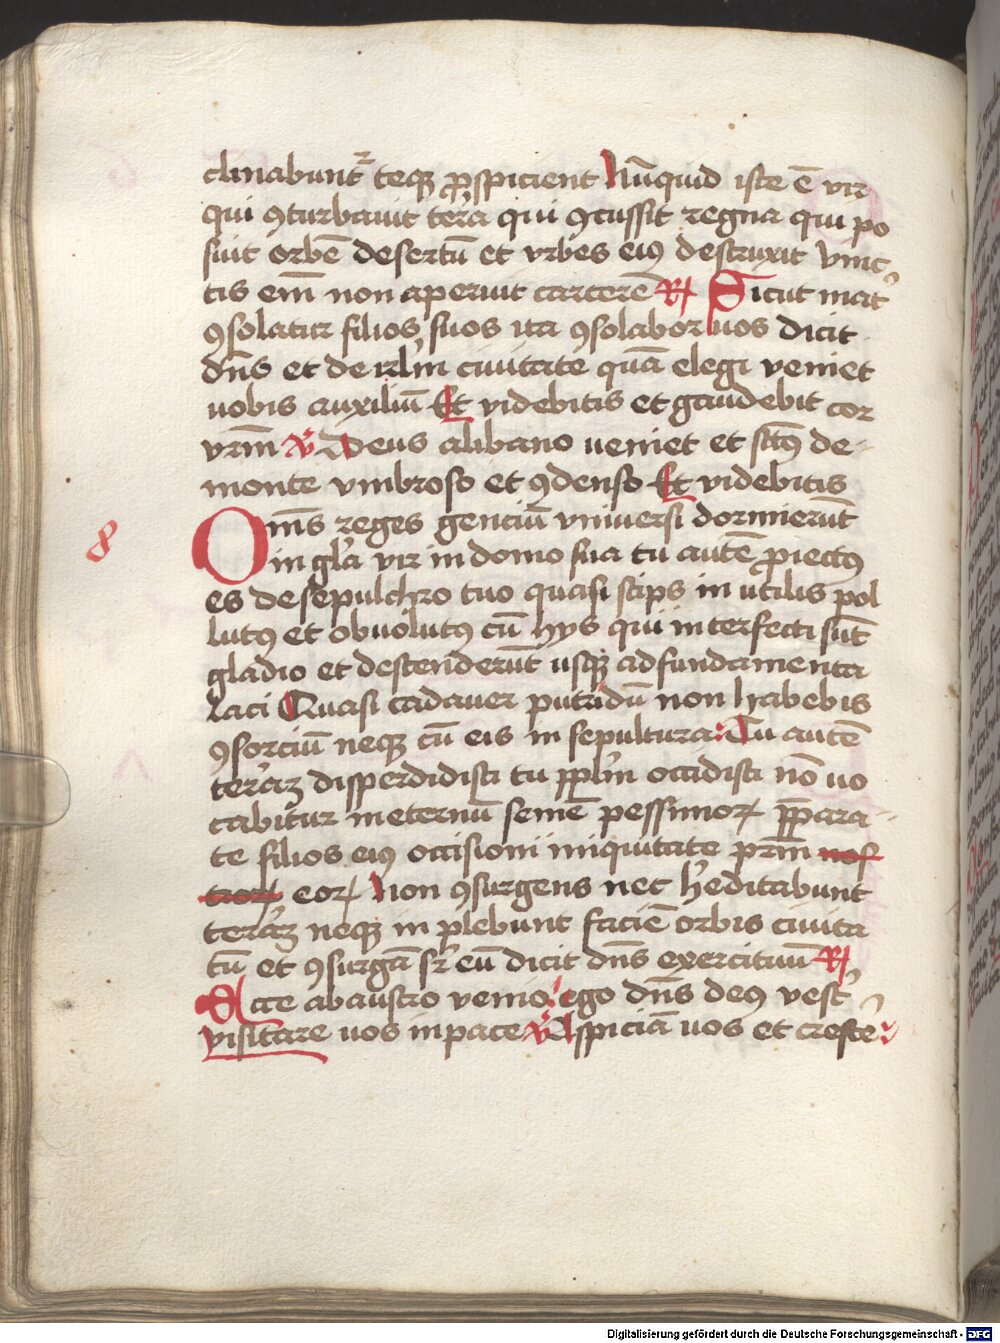 clinabunt᷑ teqꝫ ꝓspicient Nūquid iste ē vir
qui ꝯturbauit terͣa qui ꝯcussit regna qui po
suit orbē desertū et vrbes eiꝰ destruxit vinc
tis em̄ non aperuit carcerē ℟ Sicut mat᷑
ꝯsolatur filios suos ita ꝯsolabor uos dicit
dn̄s et de irlm̄ ciuitate quā elegi veniet
uobis auxiliū Et videbitis et gaudebit cor
vrm̄ ℣ Deus alibano ueniet et sctꝰ de-
monte vmbroso et ꝯdenso Et videbitis
8
Om̄s reges genciū vniuersi dormierūt
in gl̄a vir in domo sua tu autē ꝓiectꝰ
es de sepulchro tuo quasi stips in utilis pol
lutꝰ et obuolutꝰ cū hys qui interfecti sūt
gladio et descenderūt usqꝫ ad fundamenta
laci Quasi cadauer putridū non habebis
ꝯsorciū neqꝫ cū eis in sepultura Tu autē
terͣaꝫ disperdidisti tu ppl̄m occidisti nō uo
cabitur in eternū semē pessimoꝝ p̄para-
te filios eiꝰ occisioni iniquitate prm̄ nos
troꝝ eoꝝ Non ꝯsurgens nec h̄editabunt
terͣaꝫ neqꝫ in plebunt faciē orbis ciuita
tū et ꝯsurgā sr̄ eū dicit dn̄s exercituū ℟
Ecce ab austro venio ego dn̄s deꝰ vest᷑
visitare uos in pace ℣ Aspiciā uos et crescē
Digitalisierung gefördert durch die Deutsche Forschungsgemeinschaft - DFG